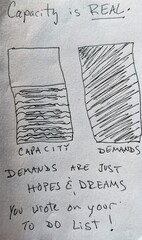 Capacity is REAL.
CAPACITY DEMANDS
DEMANDS ARE JUST
HOPES & DREAMS
You wrote on your
TO DO LIST!